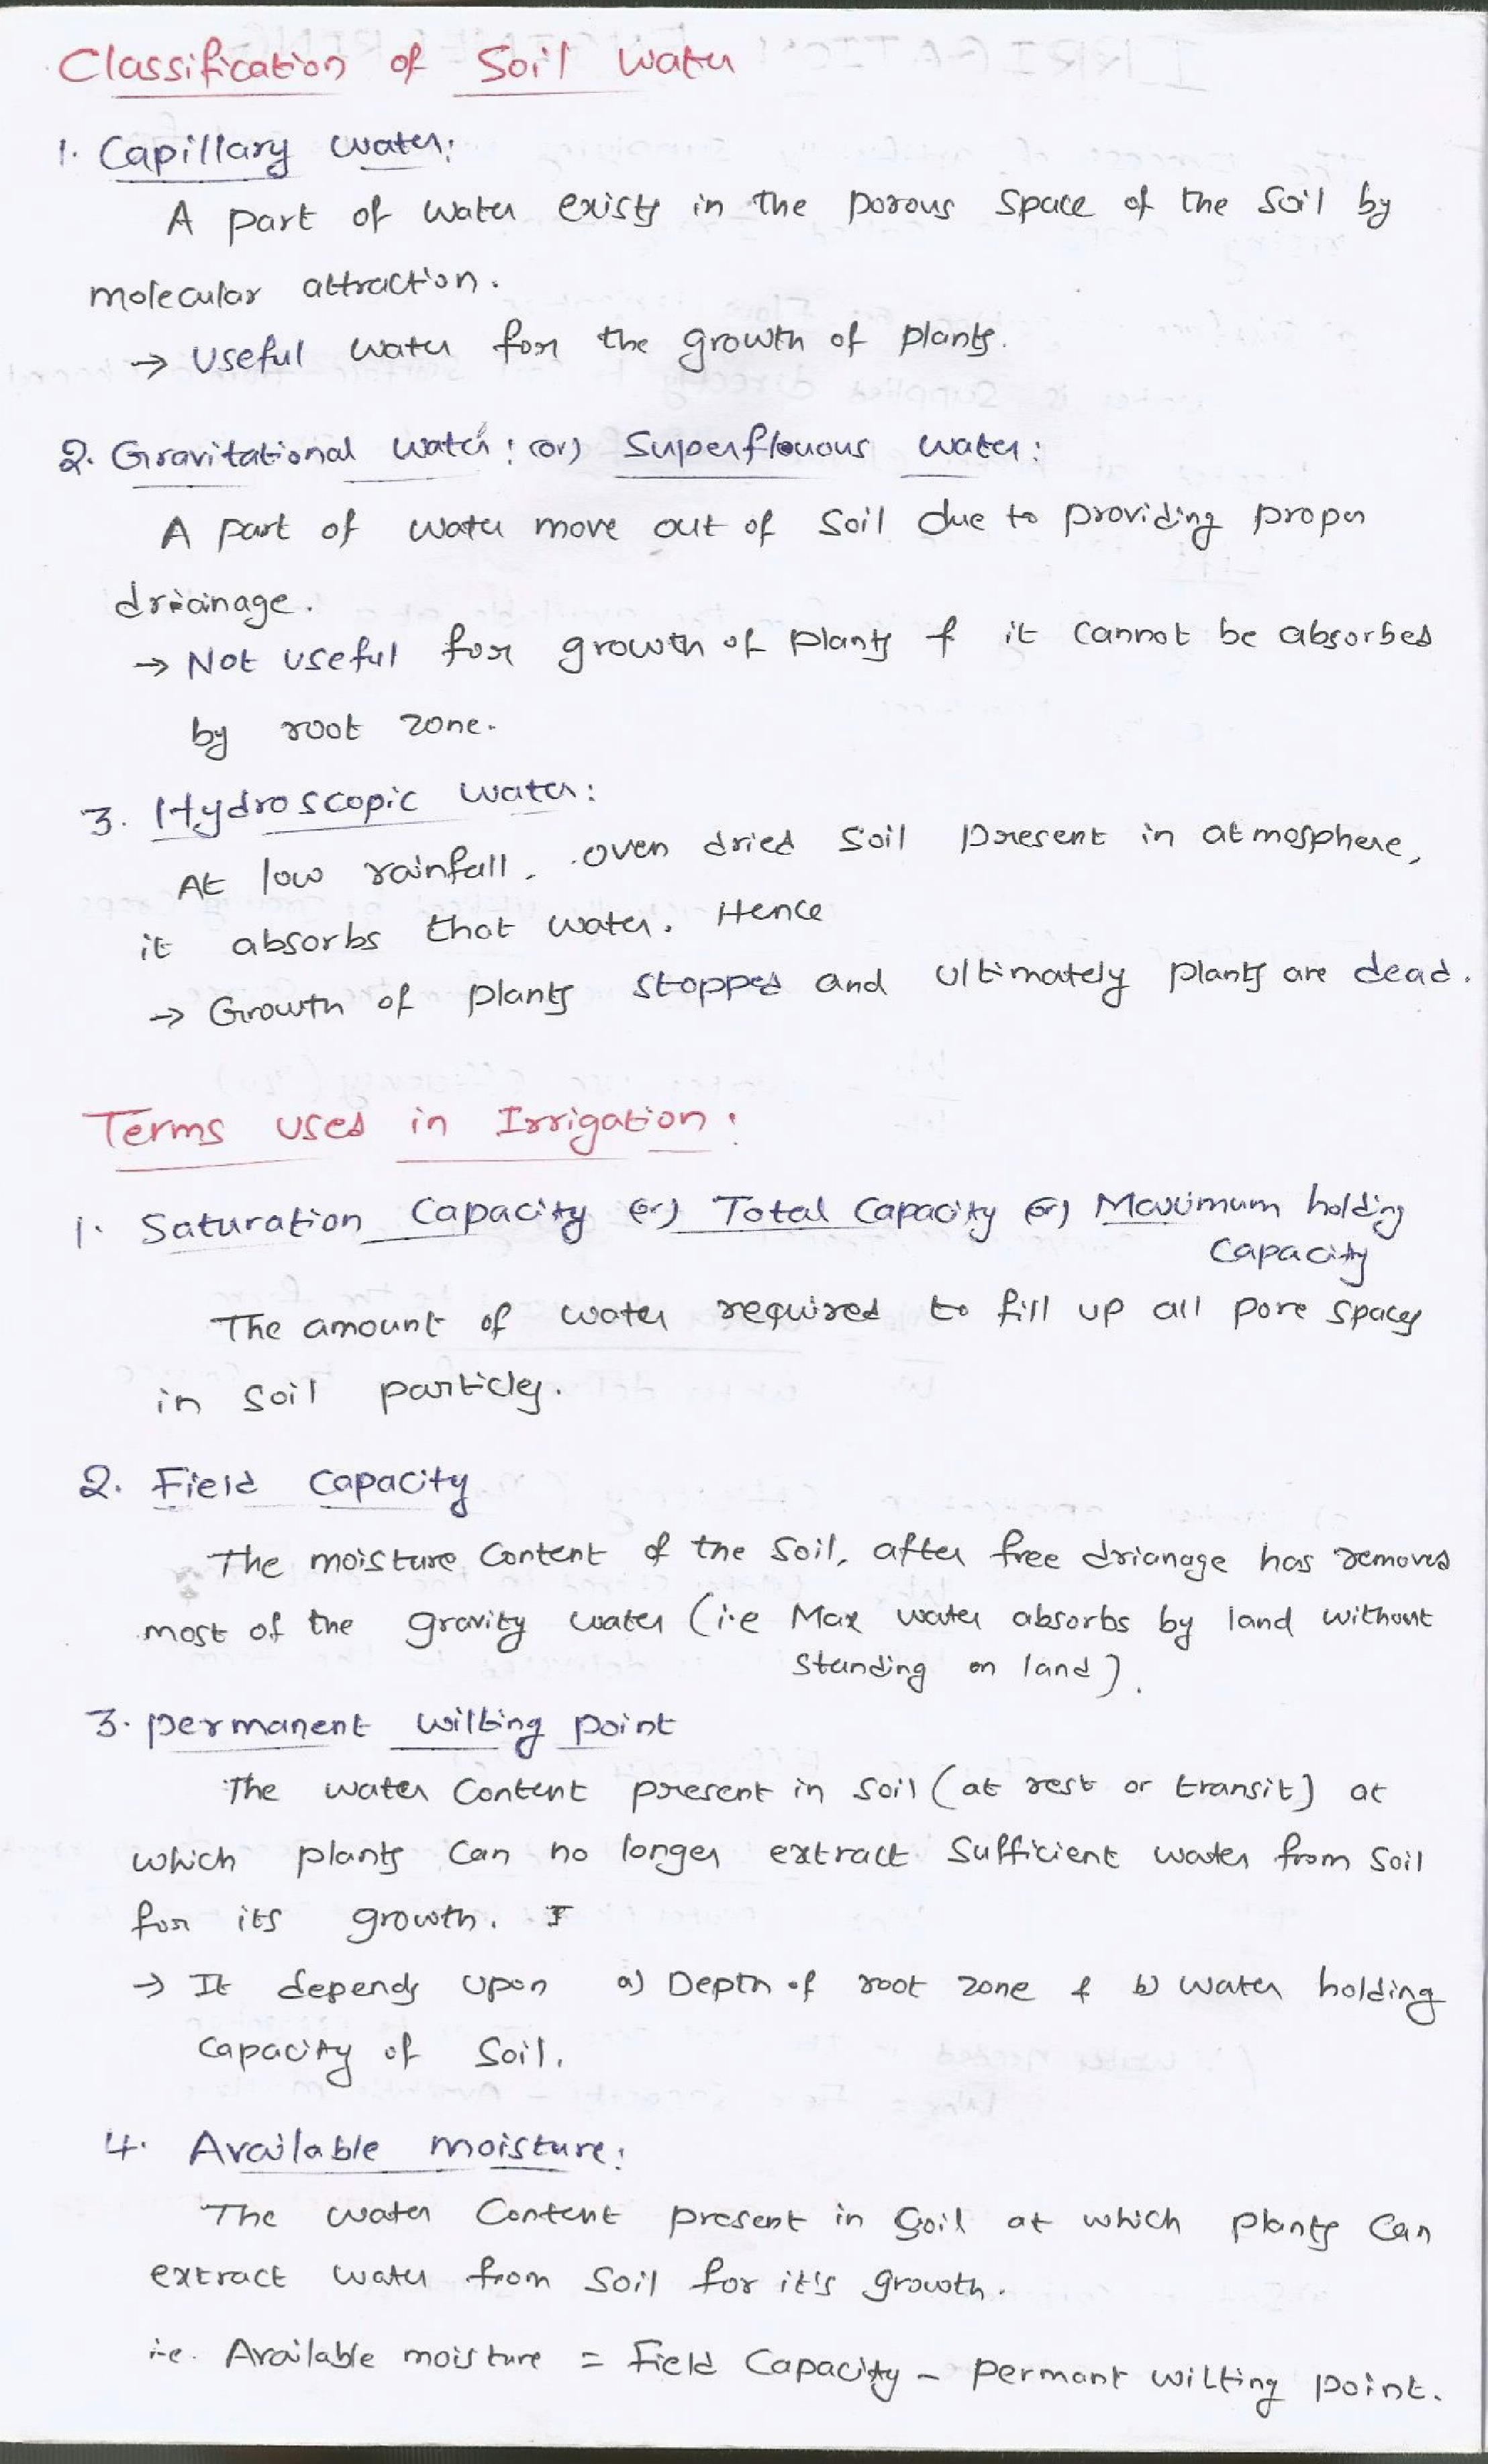 Classification of Soil Water
1. Capillary water:
A part of water exists in the porous space of the soil by
molecular attraction.
→ Useful water for the growth of plants.
2. Gravitational water: (or) Superflouous water:
A part of water move out of soil due to providing proper
drainage.
→ Not useful for growth of plants & it cannot be absorbed
by root zone.
3. Hydroscopic water:
At low rainfall, oven dried soil present in atmosphere,
it absorbs that water. Hence
→ Growth of plants stopped and ultimately plants are dead.
Terms used in Irrigation:
1. Saturation Capacity (or) Total Capacity (or) Maximum holding
Capacity
The amount of water required to fill up all pore spaces
in soil particles.
2. Field Capacity
The moisture Content of the Soil, after free drianage has removed
most of the gravity water (i.e Max water absorbs by land without
Standing on land).
3. permanent wilting point
The water Content present in soil (at rest or transit) at
which plants can no longer extract sufficient water from soil
for its growth.
→ It depends upon a) Depth of root zone & b) water holding
Capacity of Soil.
4. Available moisture:
The water Content present in Soil at which plants can
extract water from soil for it's growth.
i.e. Available moisture = Field Capacity - permant wilting point.